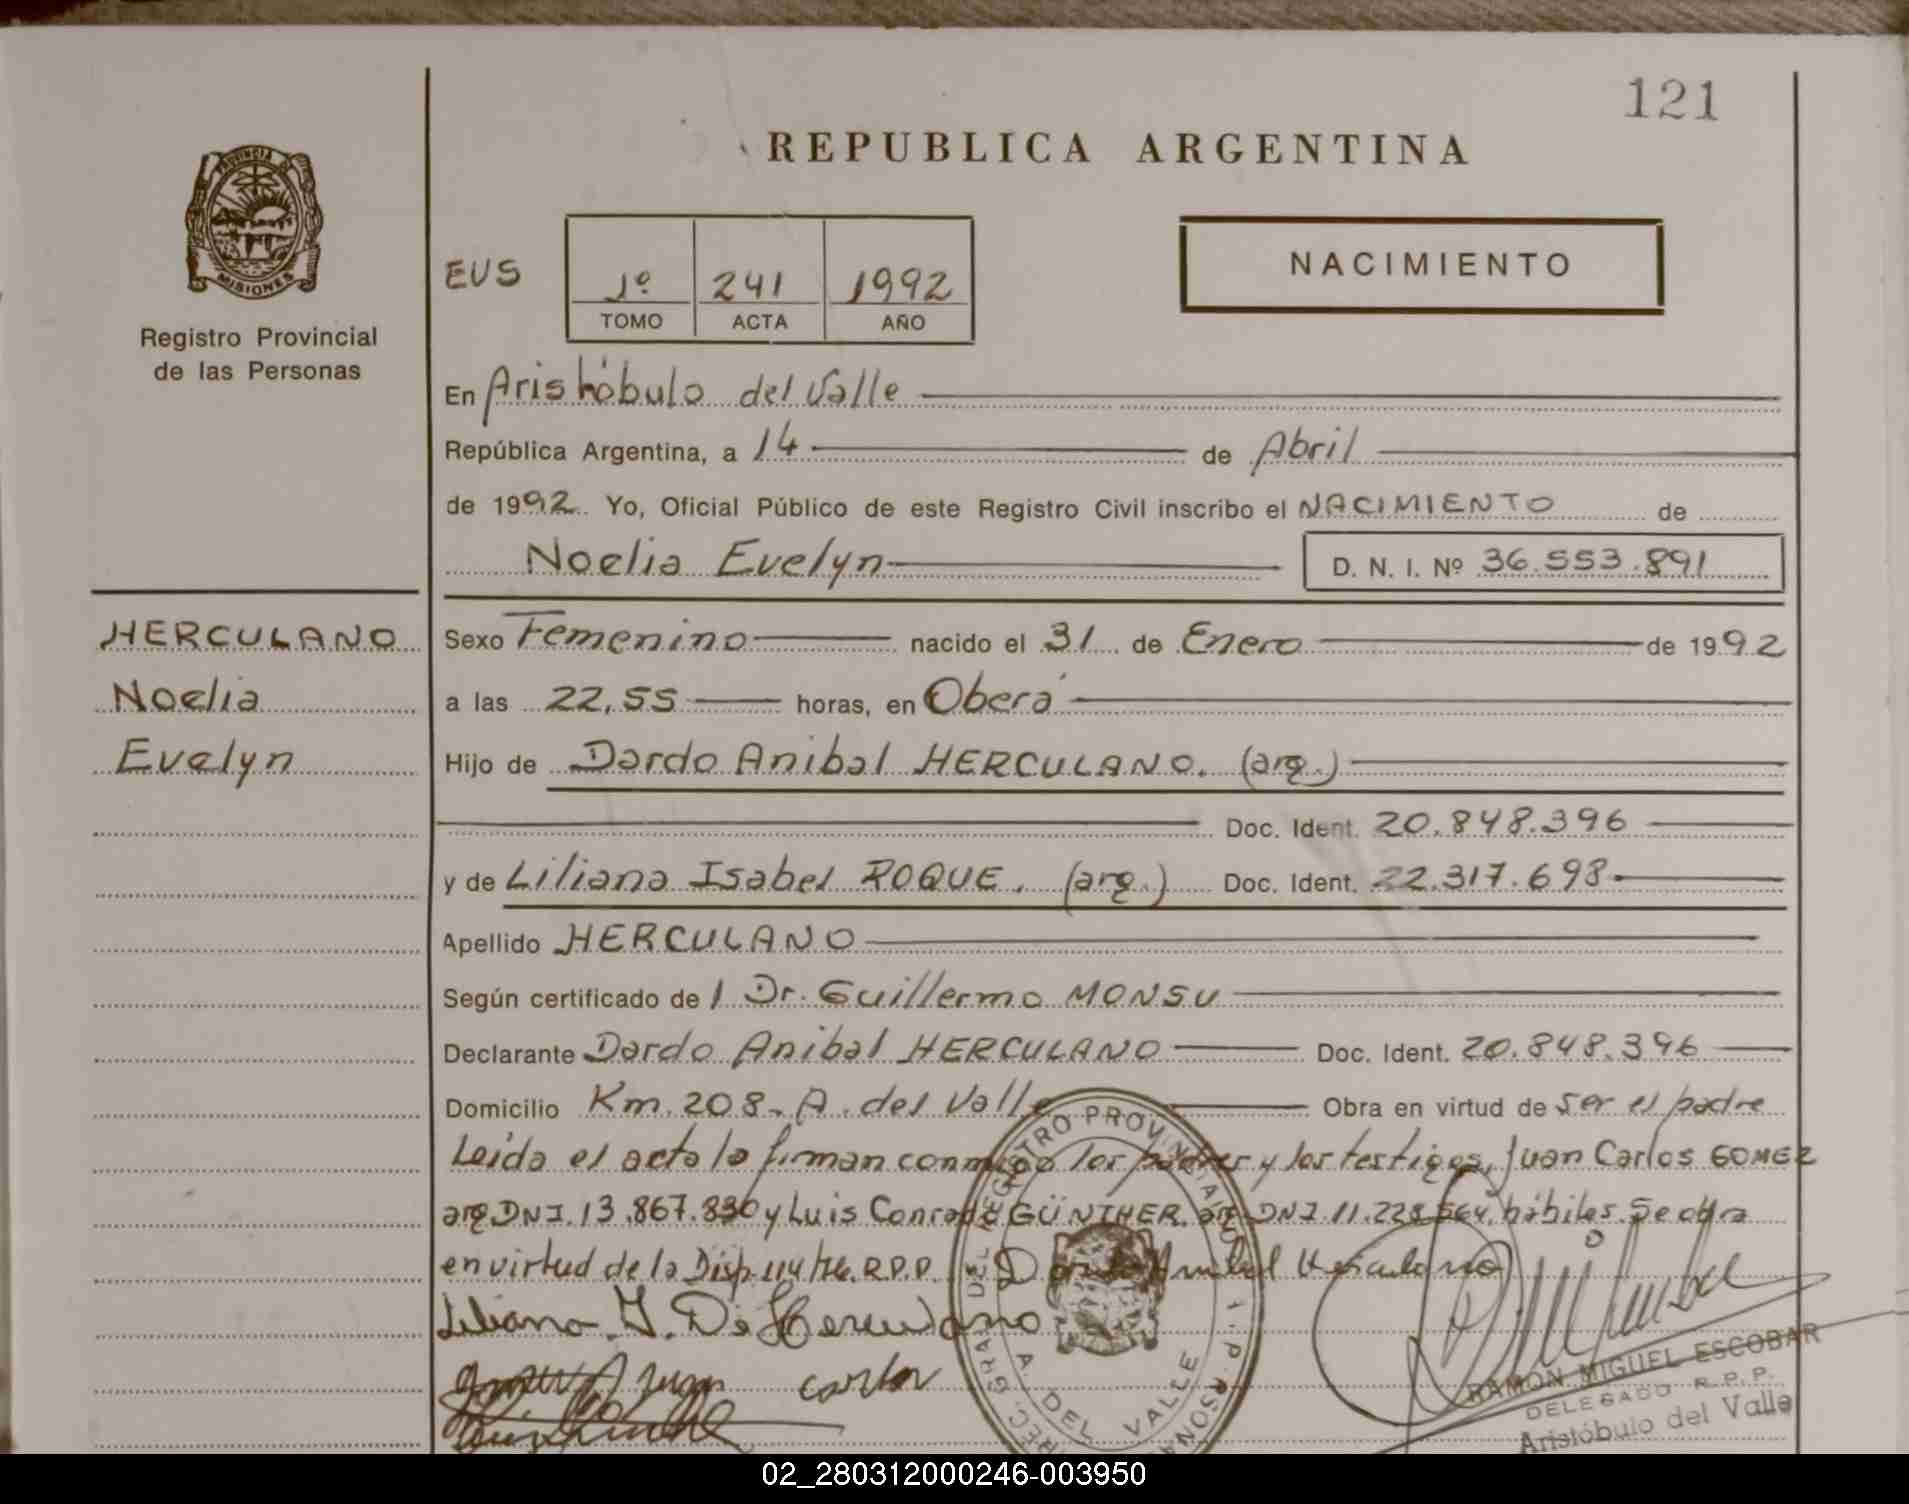 121
REPUBLICA ARGENTINA
PROVINCIA DE
MISIONES
Registro Provincial
de las Personas
EUS
1º 241 1992
TOMO ACTA AÑO
NACIMIENTO
En Aristóbulo del Valle
República Argentina, a 14 de Abril
de 1992. Yo, Oficial Público de este Registro Civil inscribo el NACIMIENTO de
Noelia Evelyn D. N. I. Nº 36.553.891
HERCULANO
Noelia
Evelyn
Sexo Femenino nacido el 31 de Enero de 1992
a las 22,55 horas, en Oberá
Hijo de Dardo Anibal HERCULANO. (arg.)
Doc. Ident. 20.848.396
y de Liliana Isabel ROQUE. (arg.) Doc. Ident. 22.317.698
Apellido HERCULANO
Según certificado de l Dr. Guillermo MONSU
Declarante Dardo Anibal HERCULANO Doc. Ident. 20.848.396
Domicilio Km. 208- A. del Valle Obra en virtud de ser el padre
Leida el acta la firman conmigo los padres y los testigos, Juan Carlos GOMEZ
arg DNI. 13.867.830 y Luis Conrado GÜNTHER. arg DNI. 11.228.564, hábiles. Se obra
en virtud de la Disp. 114/76. R.P.P. Dardo Anibal Herculano
Liliana I. De Herculano
Juan carlos
REGISTRO PROVINCIAL DE
A. DEL VALLE
RAMON MIGUEL ESCOBAR
DELEGADO R.P.P.
Aristóbulo del Valle
02_280312000246-003950